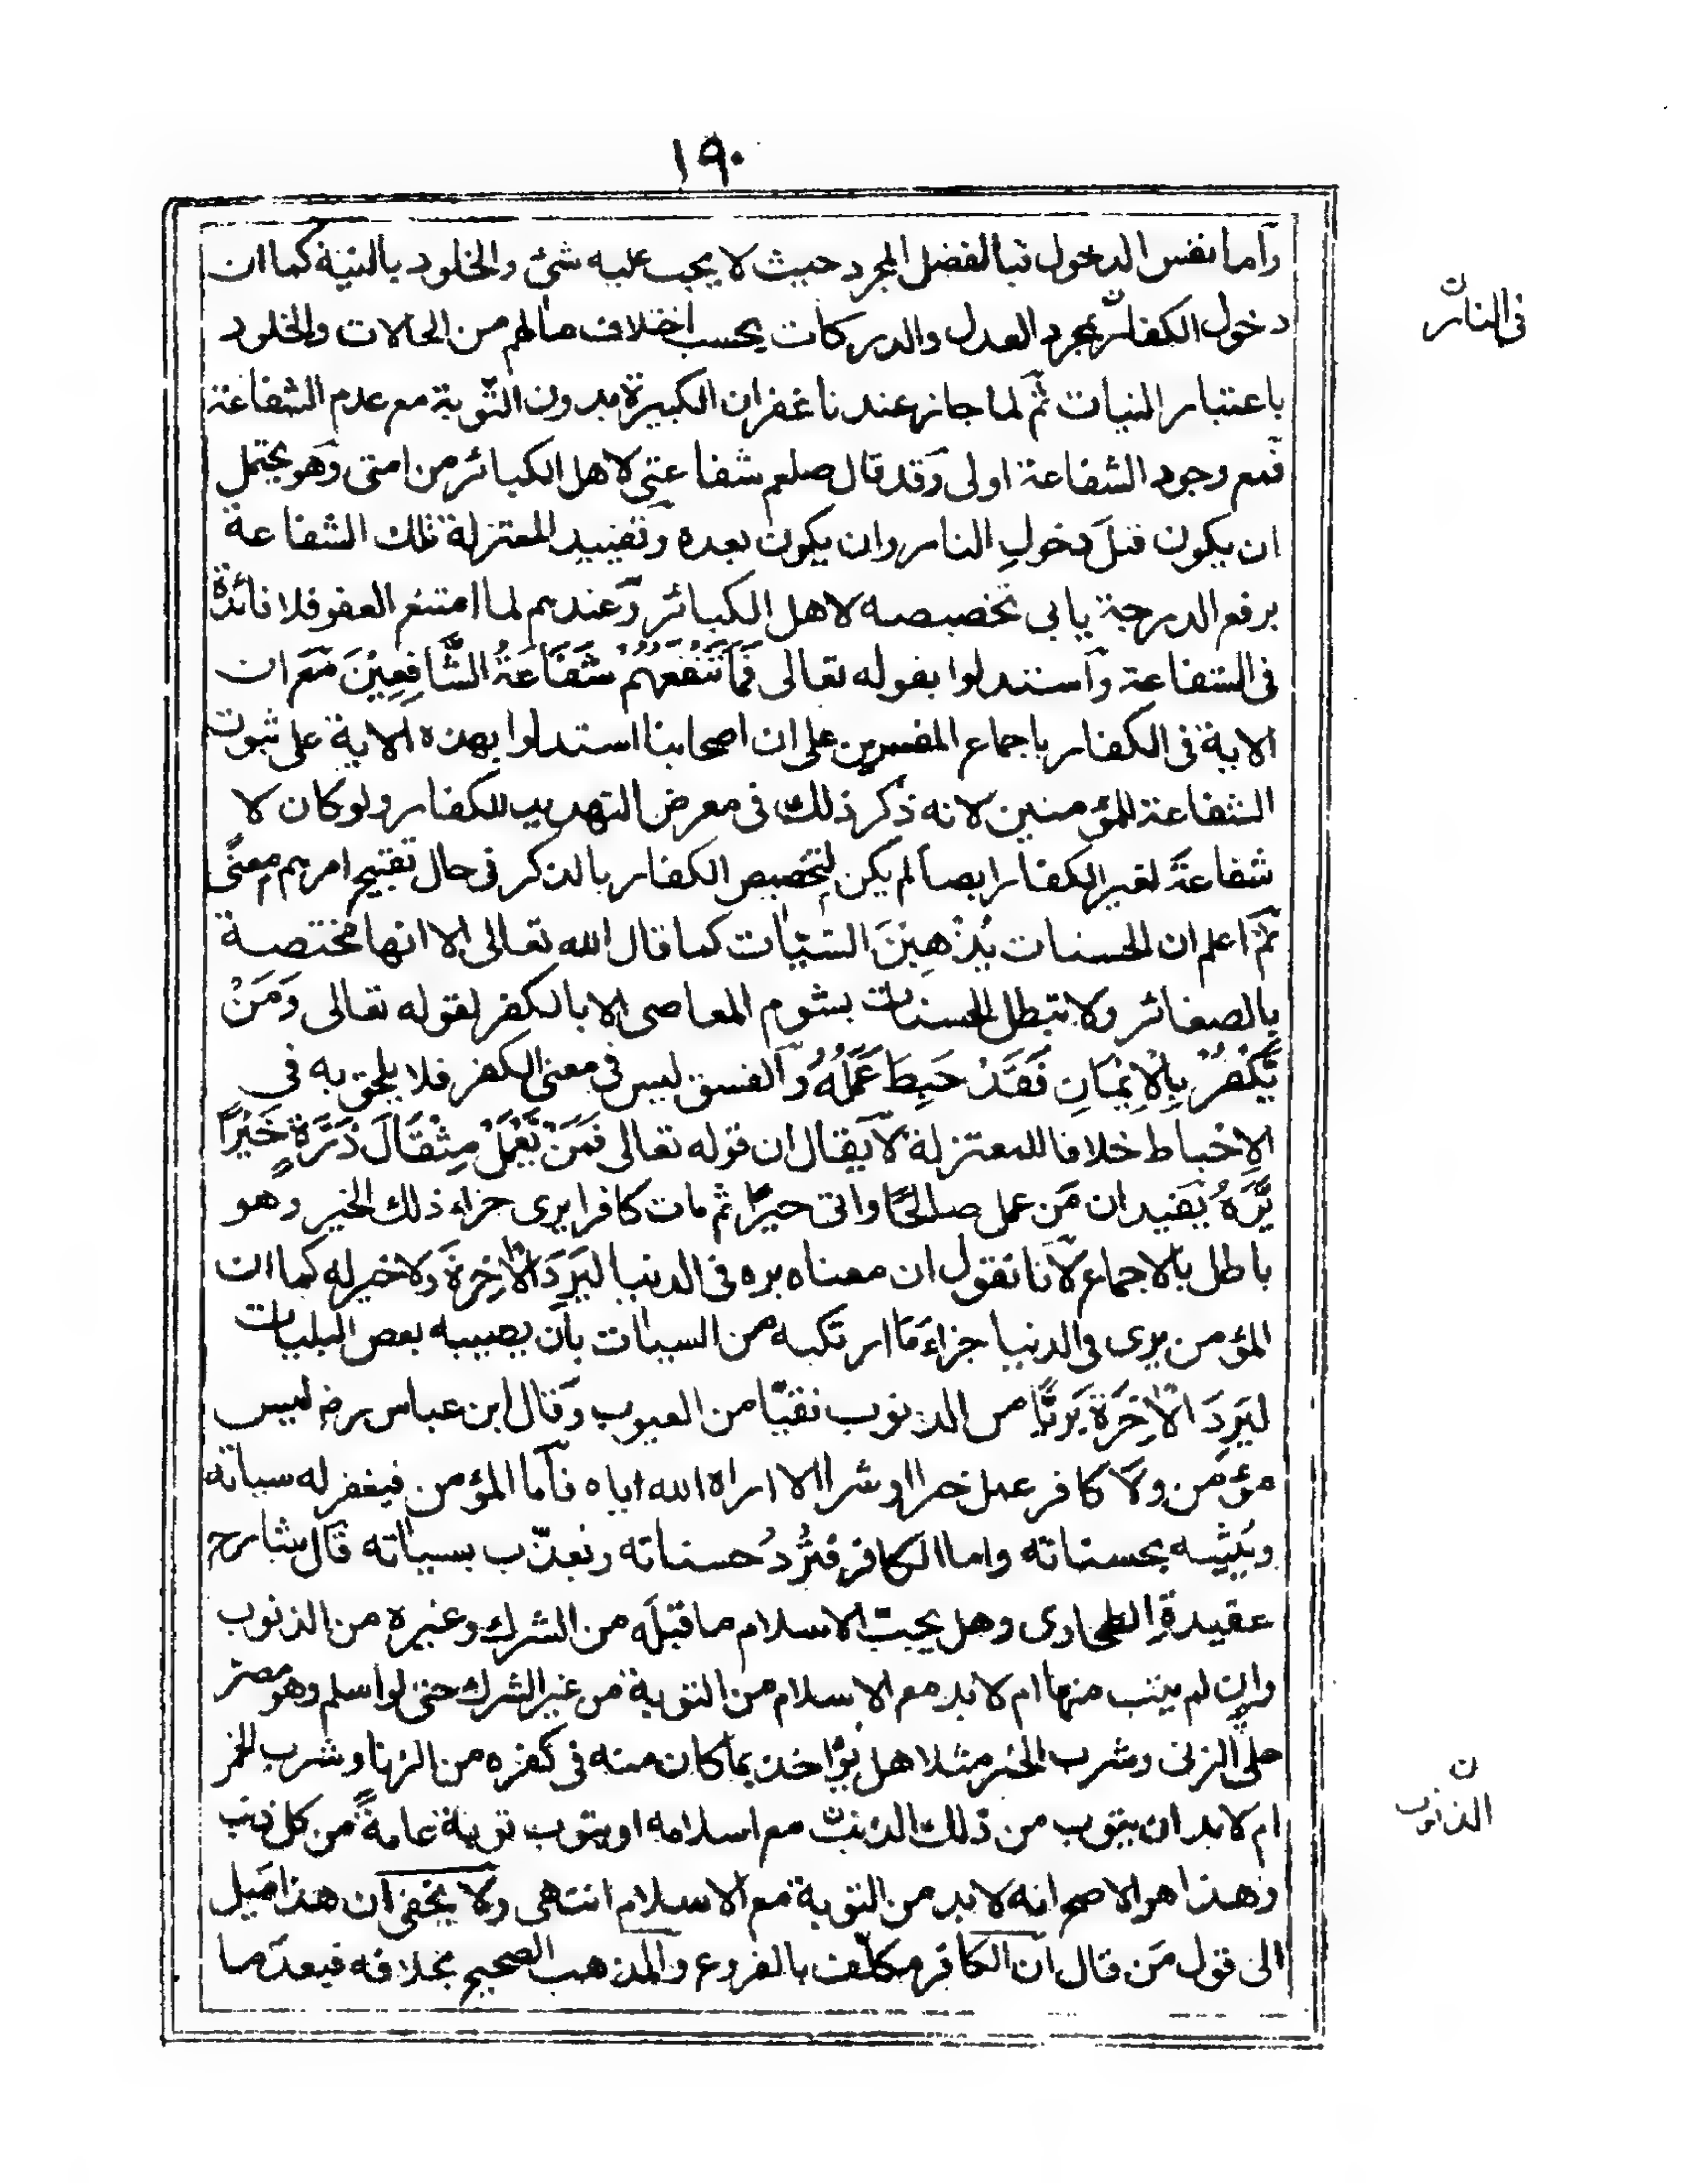 ١٩٠
وأما نفس الدخول فبالفضل المجرد حيث لا يجب عليه شئ والخلود بالنية كما ان
دخول الكفار بمجرد العدل والدركات بحسب اختلاف مالهم من الحالات والخلود
فى النار ن
باعتبار النيات ثم لما جاز عندنا غفران الكبيرة بدون التوبة مع عدم الشفاعة
فمع وجود الشفاعة اولى وقد قال صلعم شفاعتى لاهل الكبائر من امتى وهو يحتمل
ان يكون قبل دخول النار وان يكون بعده وتقييد المعتزلة تلك الشفاعة
برفع الدرجة يابى تخصيصه لاهل الكبائر وعندهم لما امتنع العفو فلا فائدة
فى الشفاعة واستدلوا بقوله تعالى فَمَا تَنْفَعُهُمْ شَفَاعَةُ الشَّافِعِيْنَ مع ان
الاية فى الكفار باجماع المفسرين على ان اصحابنا استدلوا بهذه الاية على ثبوت
الشفاعة للمؤمنين لانه ذكر ذلك فى معرض التهديد للكفار ولو كان لا
شفاعة لغير الكفار ايضا لم يكن لتخصيص الكفار بالذكر فى حال تقبيح امرهم معنًى
ثم اعلم ان الحسنات يُذْهِبْنَ السيّاٰت كما قال الله تعالى الا انها مختصة
بالصغائر ولا تبطل الحسنات بشوم المعاصى الا بالكفر لقوله تعالى وَمَنْ
يَّكْفُرْ بِالْاِيْمَانِ فَقَدْ حَبِطَ عَمَلُهُ والفسق ليس فى معنى الكفر فلا يلحق به فى
الاحباط خلافا للمعتزلة لا يقال ان قوله تعالى فَمَنْ يَّعْمَلْ مِثْقَالَ ذَرَّةٍ خَيْرًا
يَّرَهُ يفيد ان من عمل صالحًا واتى خيرًا ثم مات كافرا يرى جزاء ذلك الخير وهو
باطل بالاجماع لانا نقول ان معناه يره فى الدنيا ليَرِدَ الْاٰخِرَةَ ولا خير له كما ان
المؤمن يرى فى الدنيا جزاء ما ارتكبه من السيات بان يصيبه بعض البليات
ليَرِدَ الْاٰخِرَةَ بَرِيًّا من الذنوب نقيًّا من العيوب وقال ابن عباس رضـ ليس
مؤمن ولا كافر عمل خيرا او شرا الا اراه الله اياه فاما المؤمن فيغفر له سياته
ويُثيبه بحسناته واما الكافر فتُردُّ حسناته ويعذّب بسياٰته قال شارح
عقيدة الطحاوى وهل يجبّ الاسلام ما قبله من الشرك وغيره من الذنوب
وان لم يتب منها ام لا بد مع الاسلام من التوبة من غير الشرك حتى لو اسلم وهو مصرّ
على الزنى وشرب الخمر مثلا هل يؤاخذ بما كان منه فى كفره من الزنا وشرب الخمر
ام لا بد ان يتوب من ذلك الذنب مع اسلامه او يتوب توبة عامة من كل ذنب
الذنوب ن
وهذا هو الاصح انه لا بد من التوبة مع الاسلام انتهى ولا يخفى ان هذا ميل
الى قول من قال ان الكافر مكلف بالفروع والمذهب الصحيح بخلافه فبعد ما